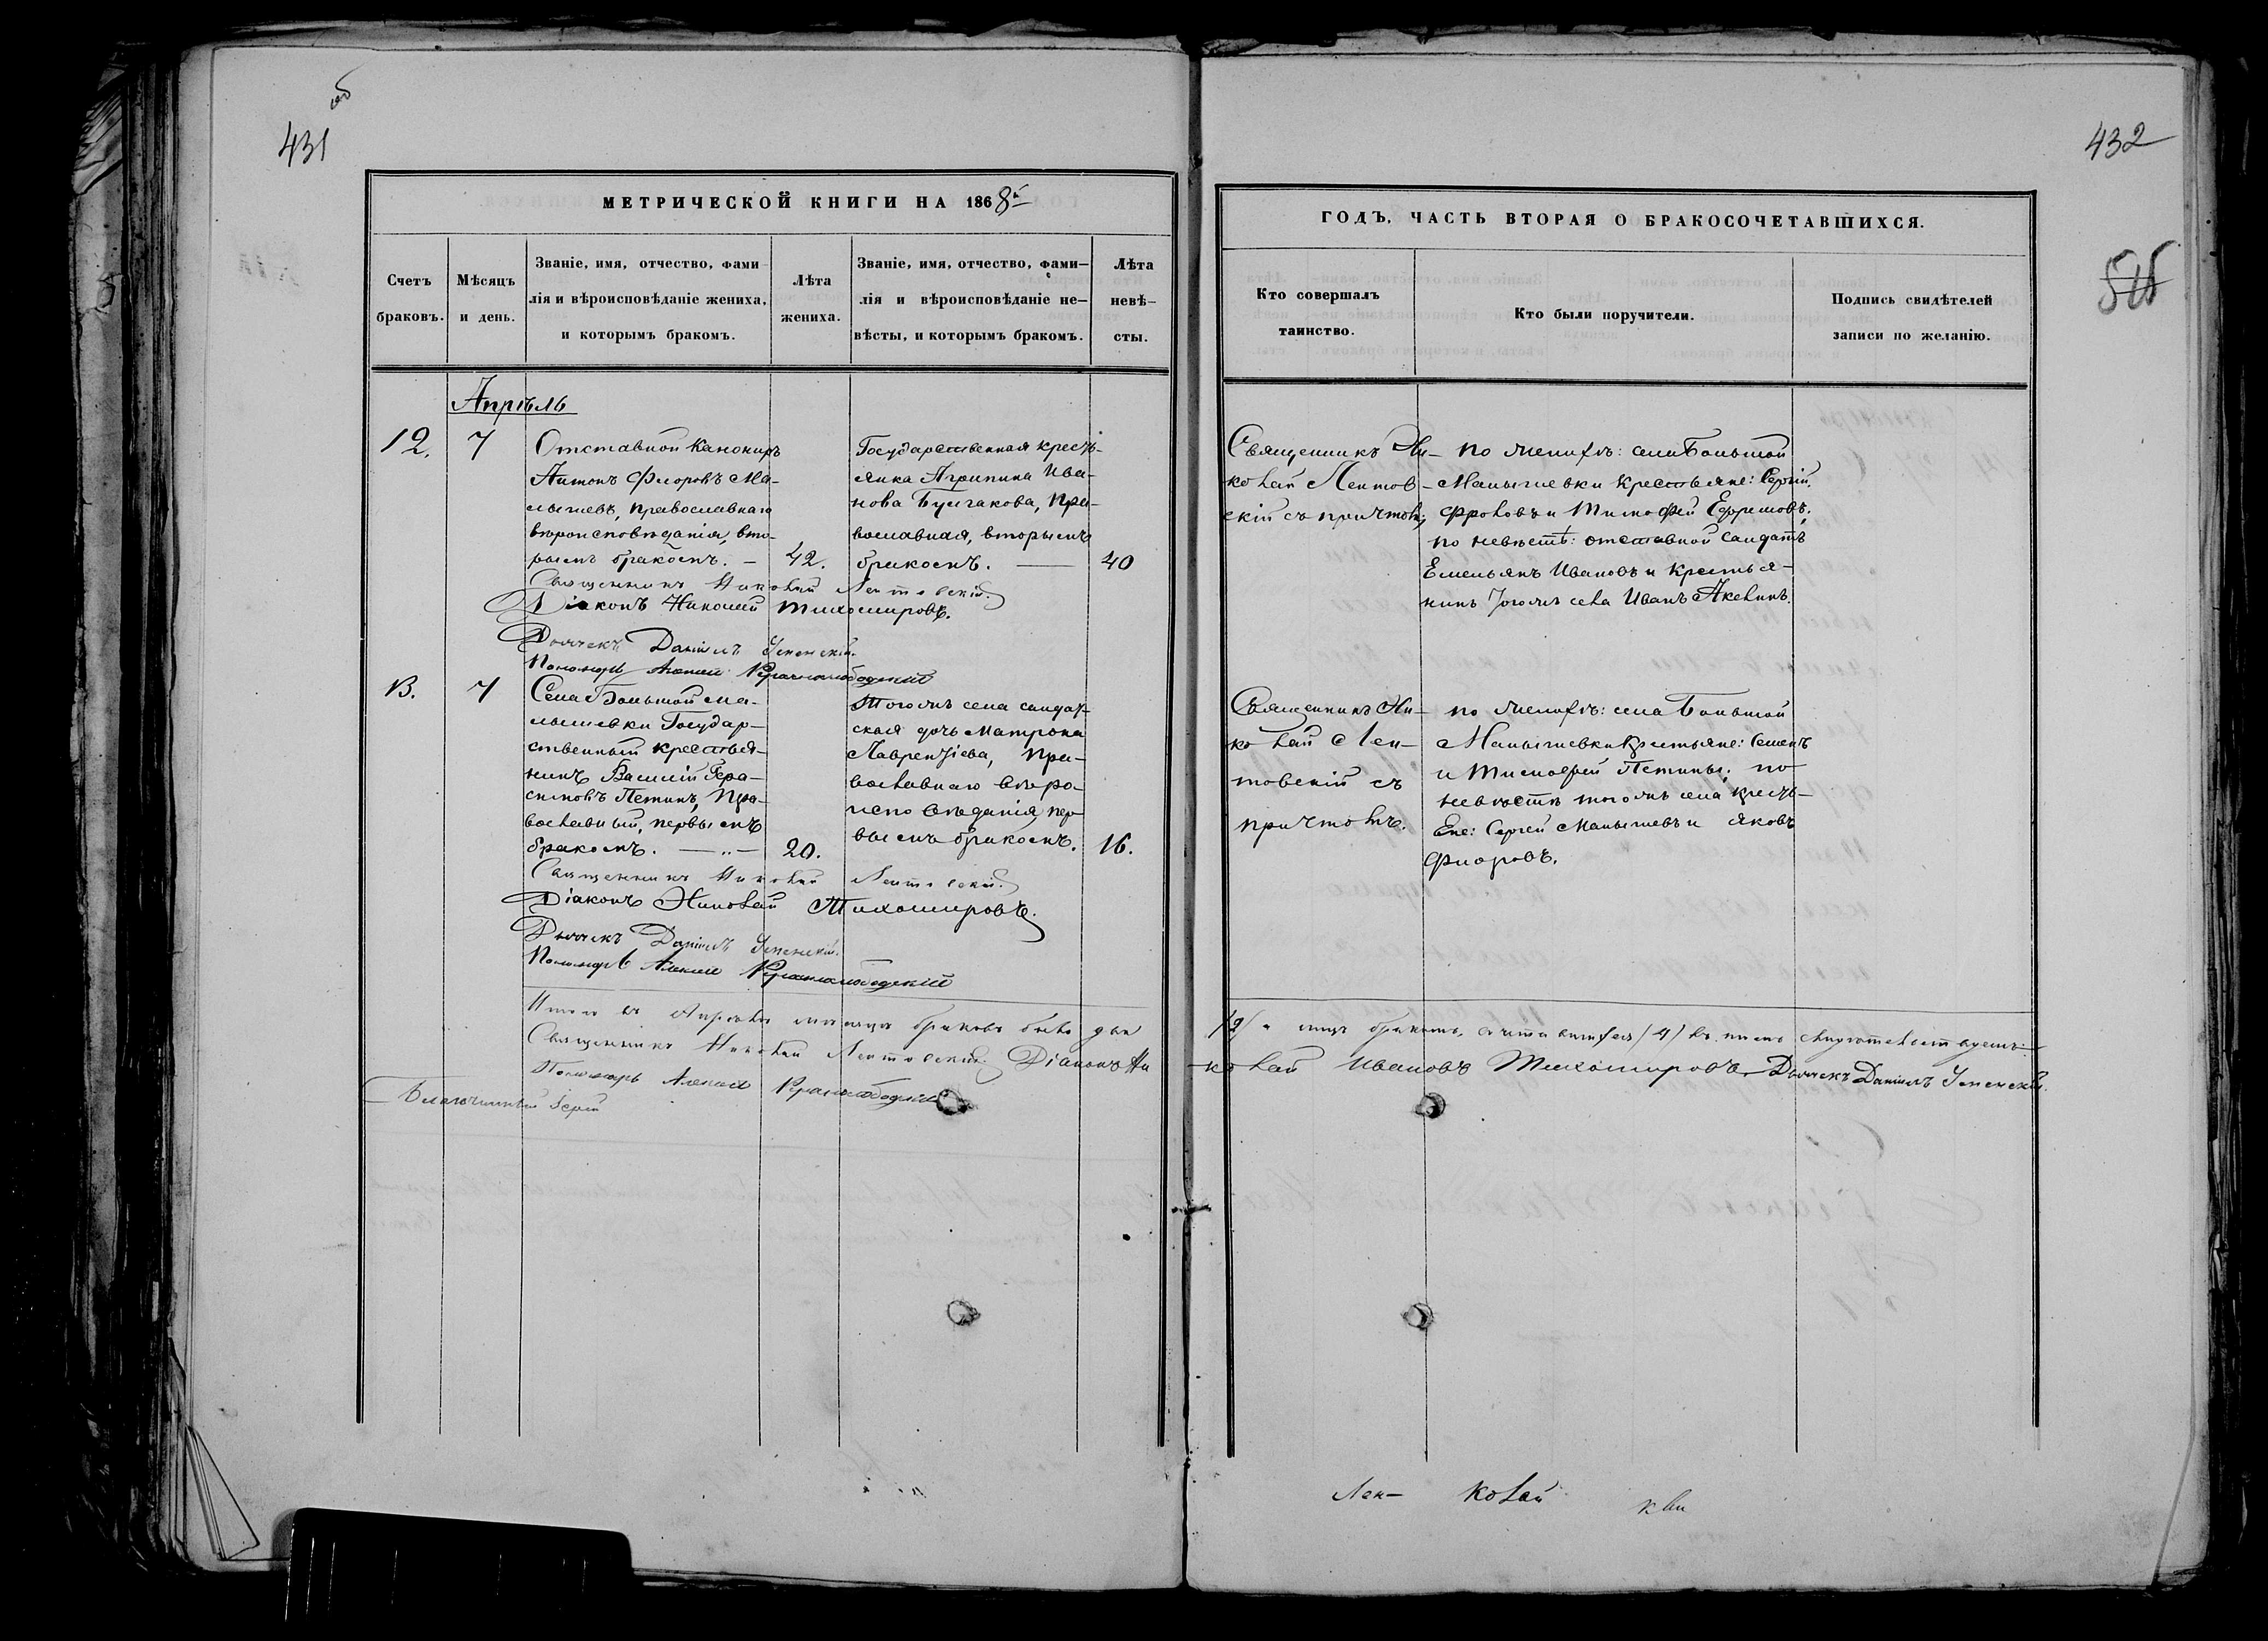 431
об
432
МЕТРИЧЕСКОЙ КНИГИ НА 1868й
ГОДЪ, ЧАСТЬ ВТОРАЯ О БРАКОСОЧЕТАВШИХСЯ.
Счетъ
браковъ.
Мѣсяцъ
и день.
Званіе, имя, отчество, фами-
лія и вѣроисповѣданіе жениха,
и которымъ бракомъ.
Лѣта
жениха.
Званіе, имя, отчество, фами-
лія и вѣроисповѣданіе не-
вѣсты, и которымъ бракомъ.
Лѣта
невѣ-
сты.
Кто совершалъ
таинство.
Кто были поручители.
Подпись свидѣтелей
записи по желанію.
Апрѣль
12.
7
Отставной Канониръ
Антонъ Флоровъ Ма-
лышевъ, православнаго
вѣроисповѣданія, вто-
рымъ бракомъ. —
42.
Государственная кресть-
янка Агрипина Ива-
нова Булгакова, пра-
вославная, вторымъ
бракомъ. —
40
Священникъ Ни-
колай Лентов-
скій съ причтомъ;
по женихѣ: села Большой
Малышевки крестьяне: Сергій
Фроловъ и Тимофей Ефремовъ;
по невѣстѣ: отставной солдатъ
Емельянъ Ивановъ и крестья-
нинъ тогожъ села Иванъ Акелинъ.
Священникъ Николай Лентовскій.
Діаконъ Николай Тихомировъ.
Дьячекъ Даніилъ Успенскій.
Пономарь Алексей Краснослободскій
13.
7
Села Большой Ма-
лышевки Государ-
ственный крестья-
нинъ Василій Гера-
симовъ Петинъ, пра-
вославный, первымъ
бракомъ. —
20.
Тогожъ села солдат-
ская дочь Матрона
Лаврентіева, пра-
вославнаго вѣро-
исповѣданія, пер-
вымъ бракомъ.
16.
Священникъ Ни-
колай Лен-
товскій съ
причтомъ.
по женихѣ: села Большой
Малышевки крестьяне: Семенъ
и Тимофей Петины; по
невѣстѣ тогожъ села кресть-
яне: Сергей Малышевъ и Яковъ
Флоровъ.
Священникъ Николай Лентовскій.
Діаконъ Николай Тихомировъ.
Дьячекъ Даніилъ Успенскій.
Пономарь Алексей Краснослободскій
Итого въ Апрѣлѣ мѣсяцѣ браковъ было два
/2/ а лицъ бракомъ /4/ въ чемъ свидѣтельствуемъ:
Священникъ Николай Лентовскій. Діаконъ Ни-
колай Ивановъ Тихомировъ. Дьячекъ Даніилъ Успенскій.
Пономарь Алексей Краснослободскій
Благочинный Іерей
Лен- колай